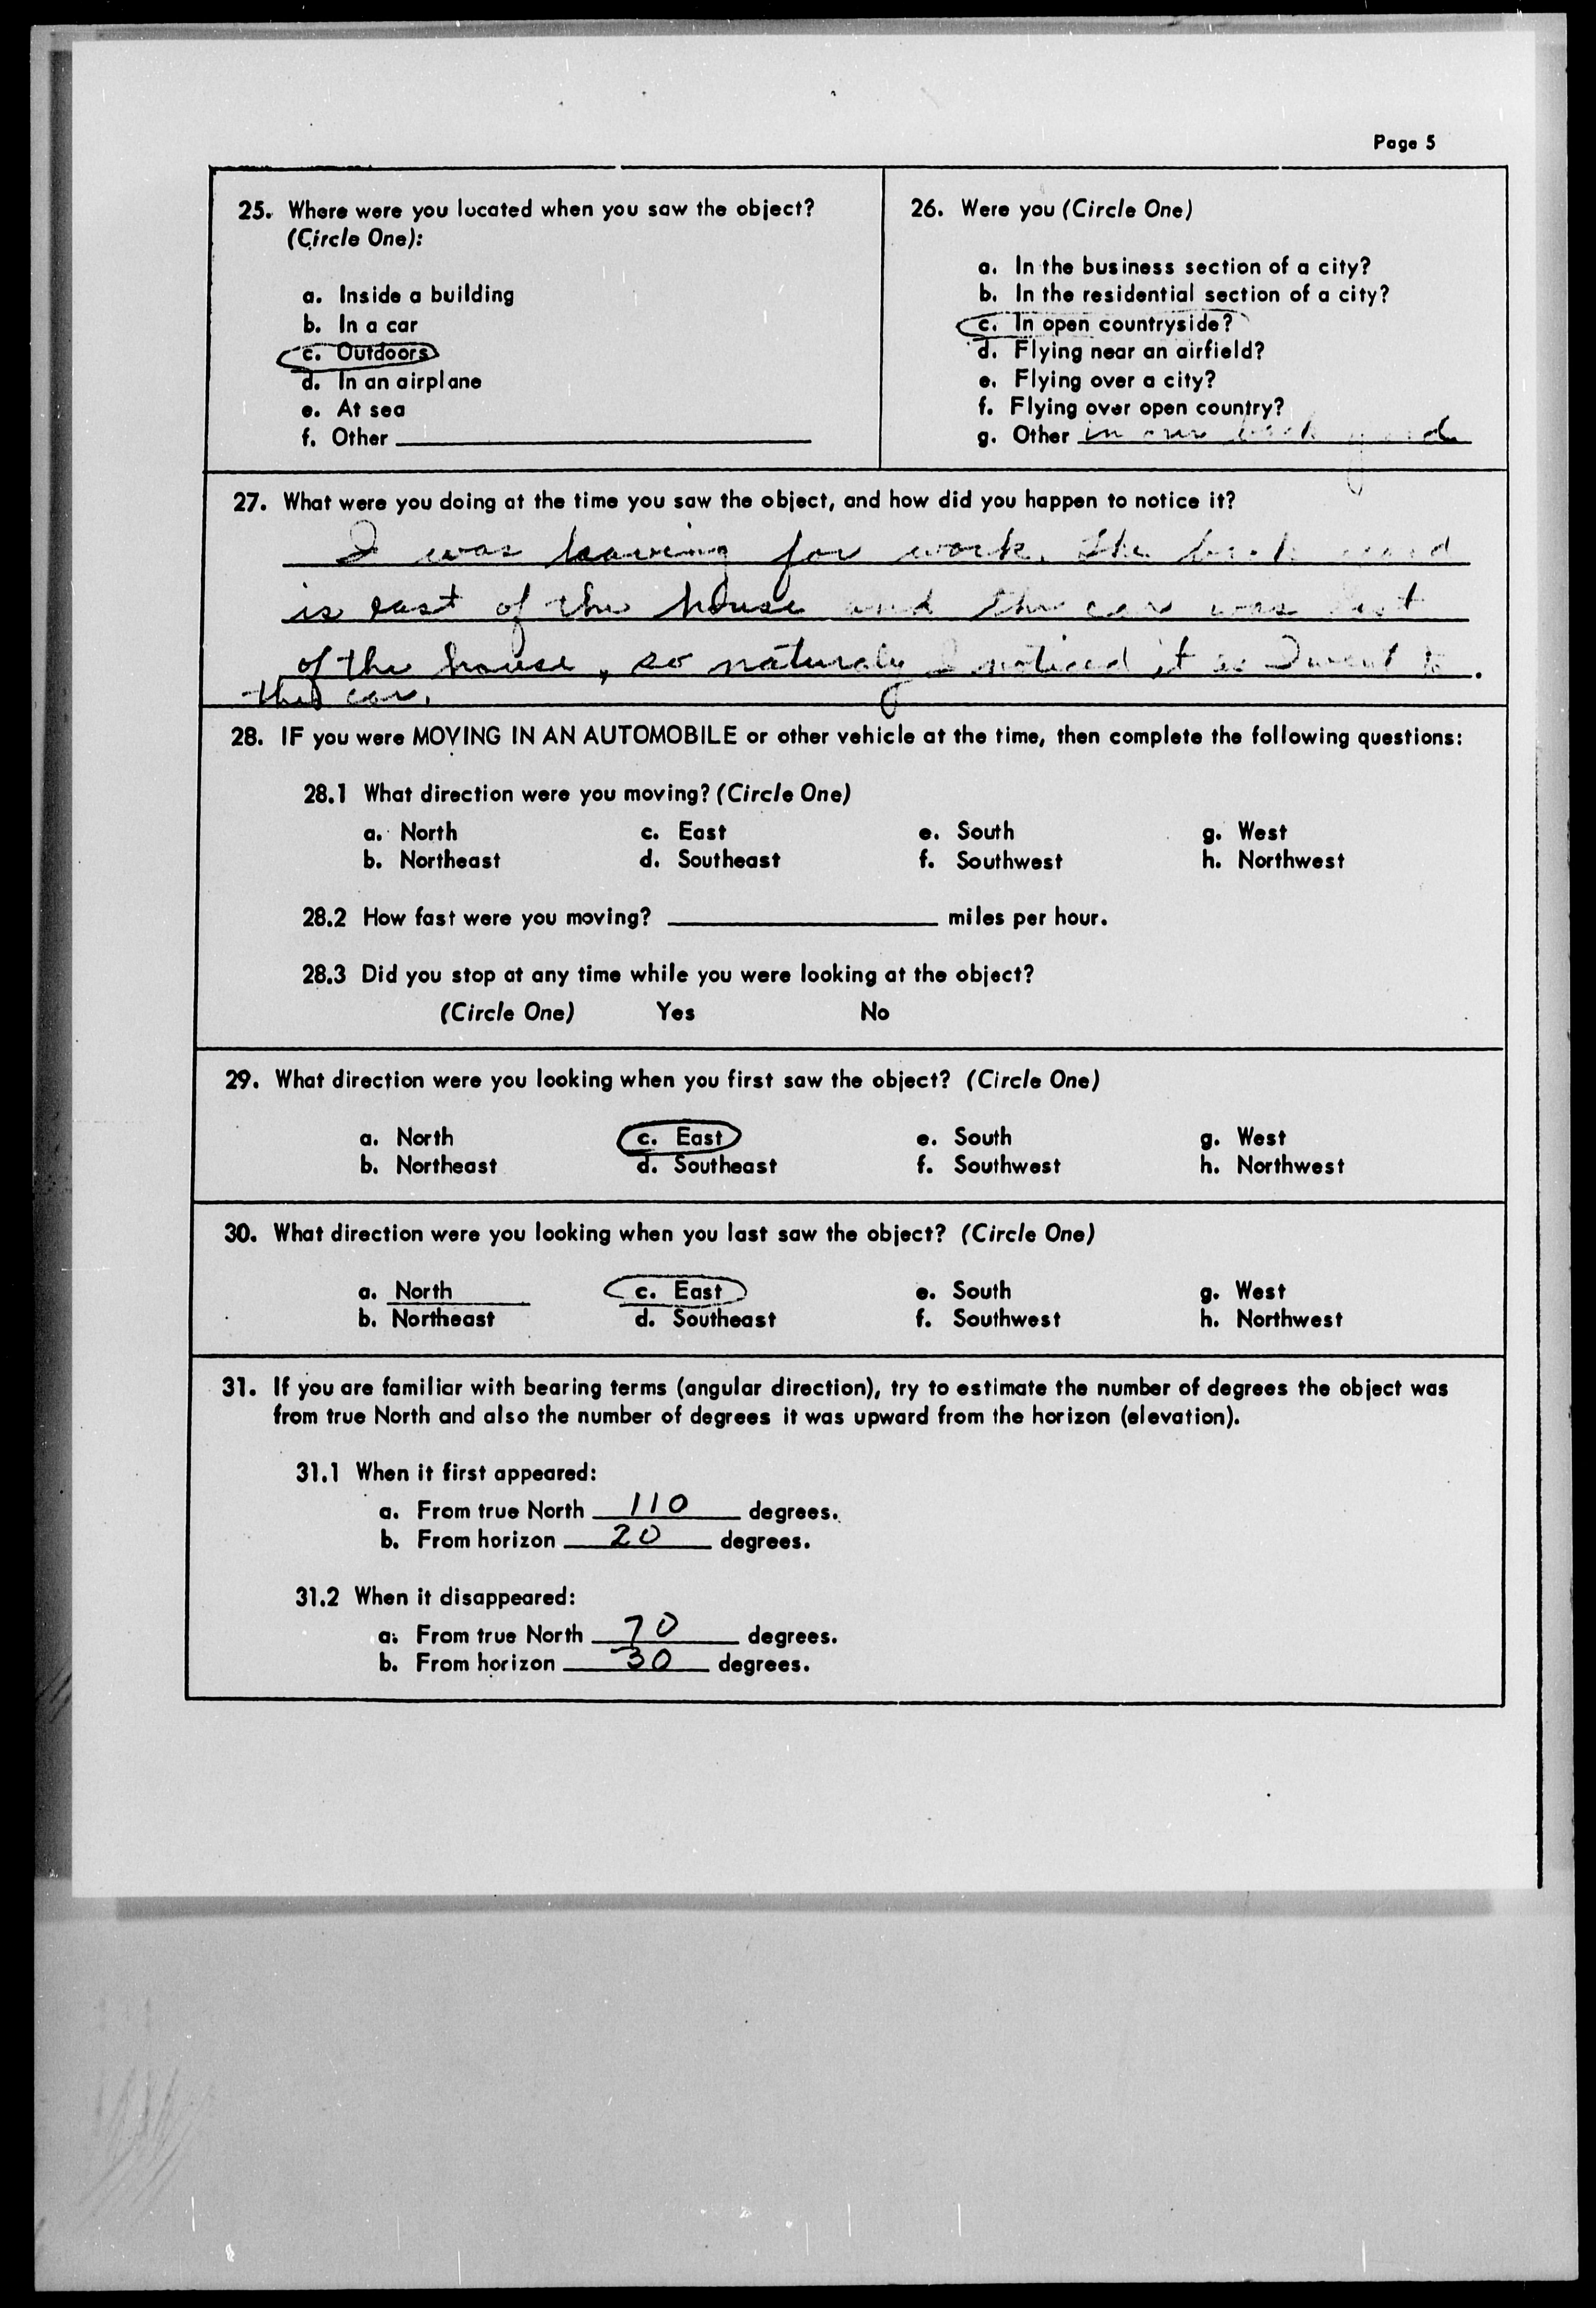 Page 5
25. Where were you located when you saw the object?
(Circle One):
a. Inside a building
b. In a car
c. Outdoors
d. In an airplane
e. At sea
f. Other
26. Were you (Circle One)
a. In the business section of a city?
b. In the residential section of a city?
c. In open countryside?
d. Flying near an airfield?
e. Flying over a city?
f. Flying over open country?
g. Other in our back yard
27. What were you doing at the time you saw the object, and how did you happen to notice it?
I was leaving for work. The back yard
is east of the house and the car was
of the house, so naturaly I noticed it as I went to
the car.
28. IF you were MOVING IN AN AUTOMOBILE or other vehicle at the time, then complete the following questions:
28.1 What direction were you moving? (Circle One)
a. North c. East e. South g. West
b. Northeast d. Southeast f. Southwest h. Northwest
28.2 How fast were you moving? miles per hour.
28.3 Did you stop at any time while you were looking at the object?
(Circle One) Yes No
29. What direction were you looking when you first saw the object? (Circle One)
a. North c. East e. South g. West
b. Northeast d. Southeast f. Southwest h. Northwest
30. What direction were you looking when you last saw the object? (Circle One)
a. North c. East e. South g. West
b. Northeast d. Southeast f. Southwest h. Northwest
31. If you are familiar with bearing terms (angular direction), try to estimate the number of degrees the object was
from true North and also the number of degrees it was upward from the horizon (elevation).
31.1 When it first appeared:
a. From true North 110 degrees.
b. From horizon 20 degrees.
31.2 When it disappeared:
a. From true North 70 degrees.
b. From horizon 30 degrees.